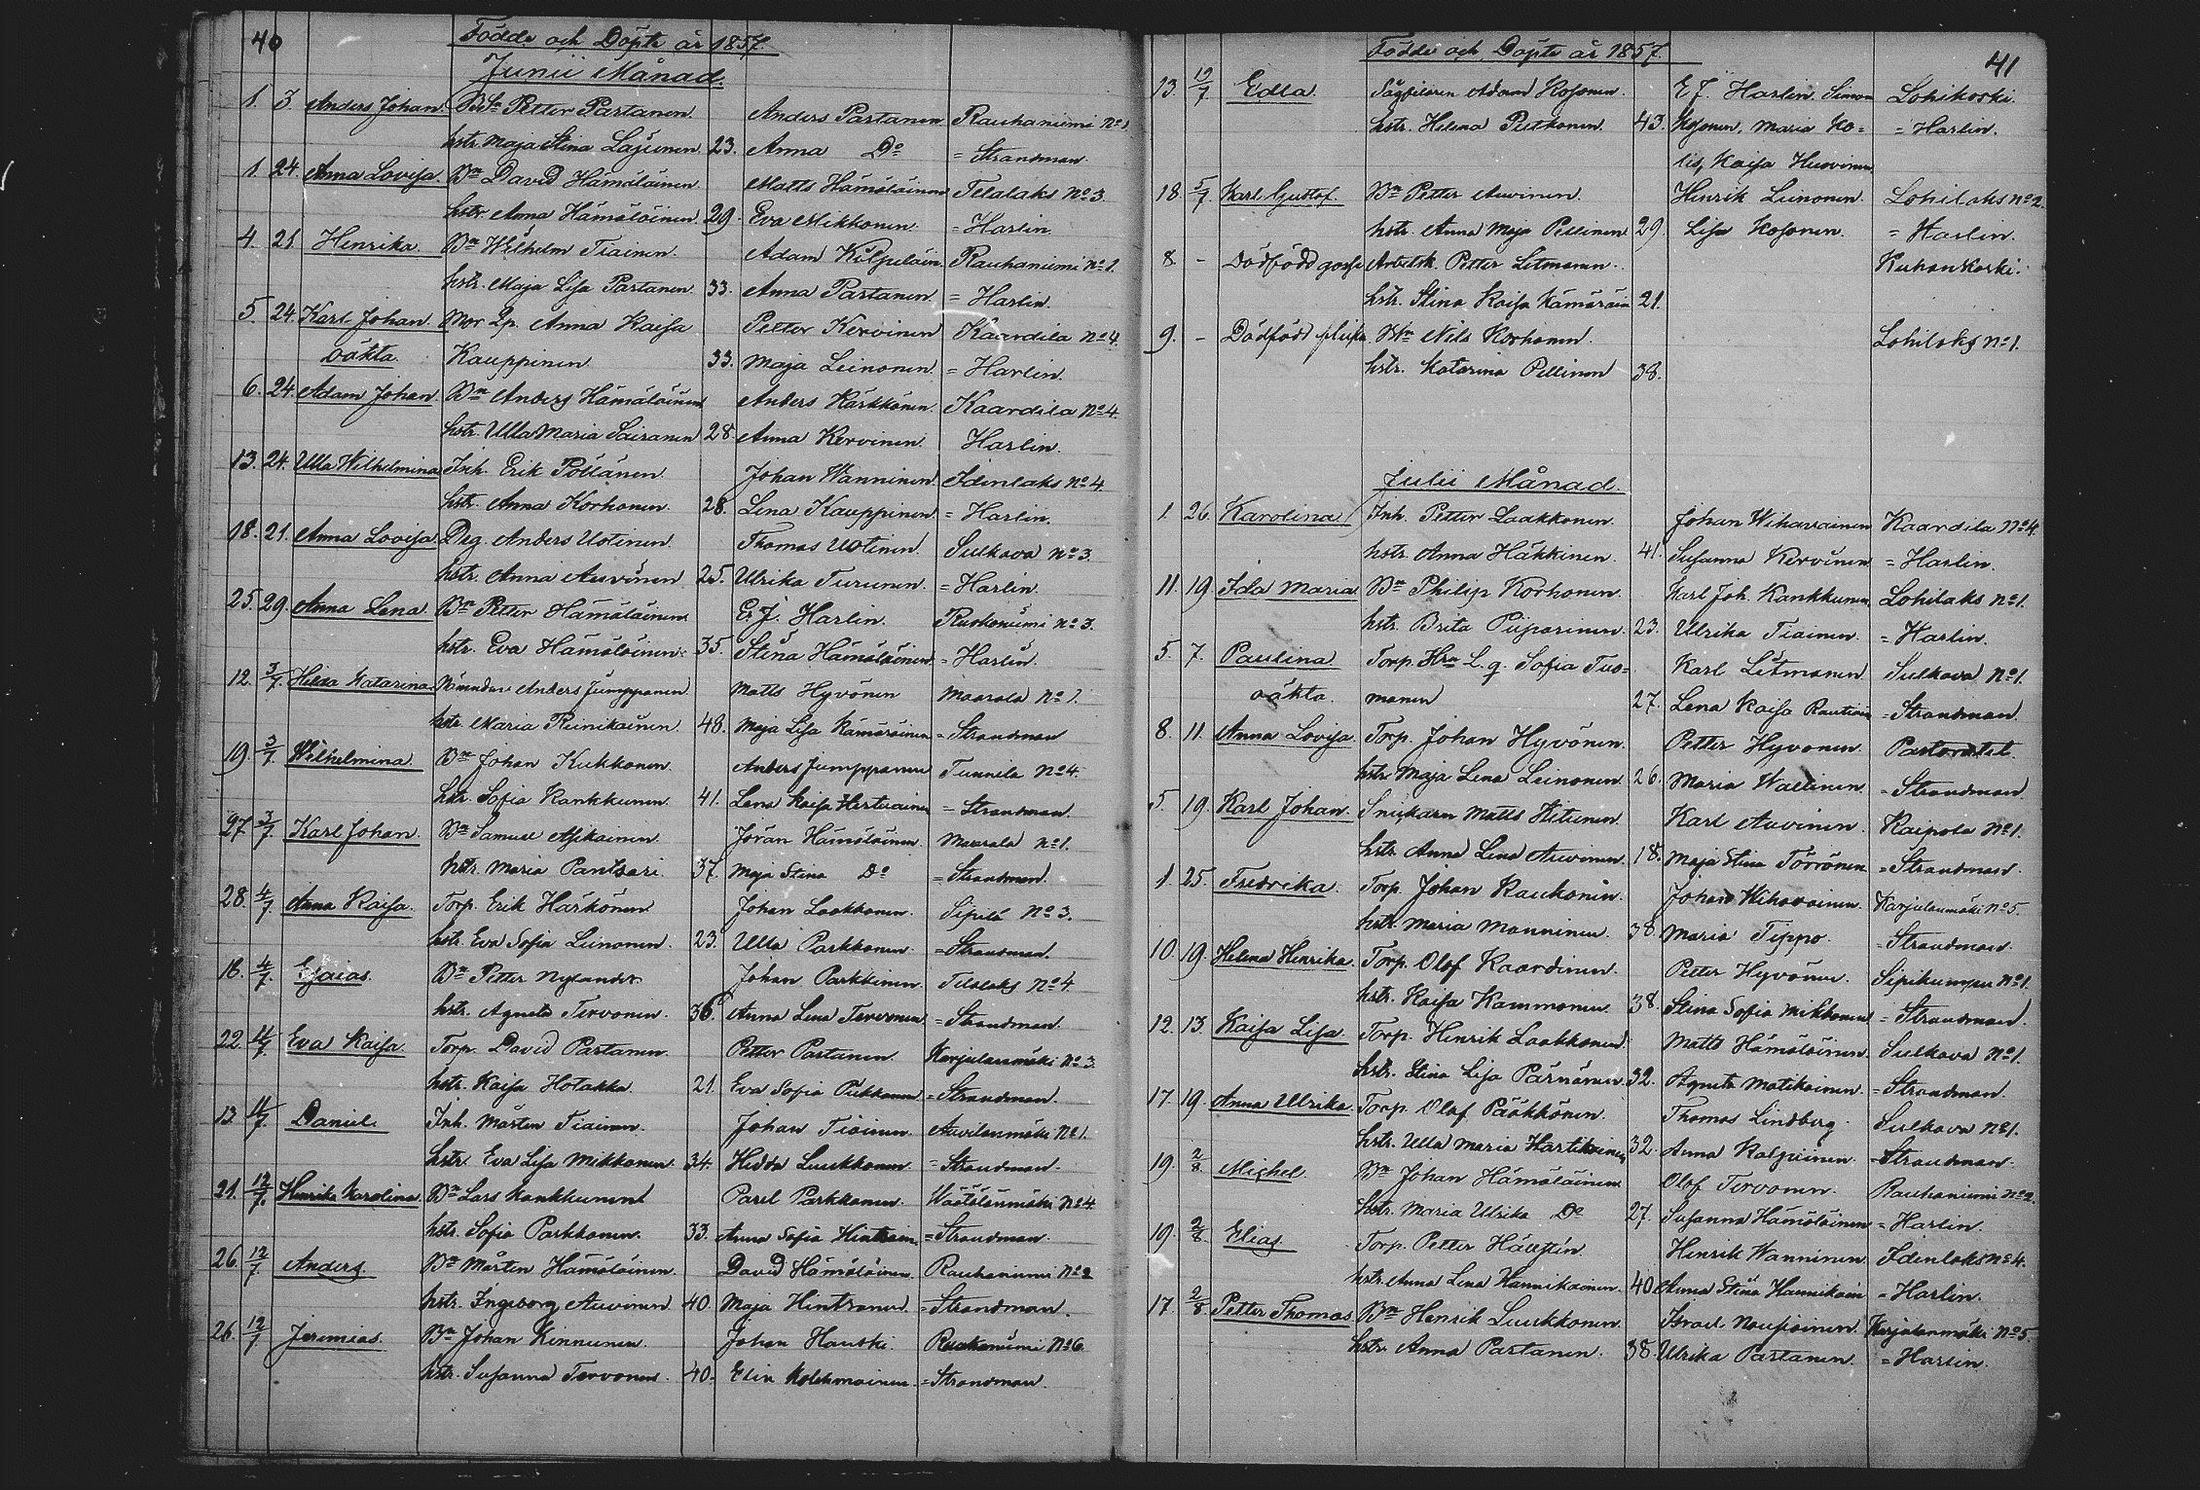 40
Födde och Döpte år 1857.
Junii Månad.
1. 3. Anders Johan. Bdn Petter Partanen. Anders Partanen Rauhaniemi No 1
hstr. Maja Stina Lajunen. 23. Anna Do = Strandman.
1. 24. Anna Lovisa. Bn David Hämäläinen. Matts Hämäläinen Telalaks No 3.
hstr Anna Hämäläinen. 29. Eva Mikkonen. = Harlin
4. 21 Henrika. Bn Wilhelm Tiainen. Adam Kilpeläin. Rauhaniemi No 1.
hstr. Maja Lisa Partanen. 33. Anna Partanen = Harlin.
5. 24. Karl Johan Mor Qp. Anna Kaisa Petter Kervinen Kaardila No 4.
oäkta. Kauppinen. 33. Maja Leinonen. = Harlin.
6. 24. Adam Johan. Bn Anders Hämäläinen Anders Härkkönen. Kaardila No 4.
hstr. Ulla Maria Sairanen 28. Anna Kervinen. Harlin.
13. 24. Ulla Wilhelmina Inh. Erik Pöllänen. Johan Wänninen. Idenlaks No 4.
hstr. Anna Korhonen. 28. Lena Kauppinen = Harlin.
18. 21. Anna Lovisa Drg. Anders Uotinen. Thomas Uotinen. Sulkava No 3.
hstr. Anna Auvinen 25. Ulrika Turunen. = Harlin.
25. 29. Anna Lena. Bn Petter Hämäläinen E. J. Harlin. Ruokoniemi No 3.
hstr. Eva Hämäläinen. 35. Stina Hämäläinen = Harlin.
12. 3/7. Hilda Katarina. Nämndm. Anders Jumppanen. Matts Hyvönen Maarala No 1.
hstr Maria Reinikainen. 48. Maja Lisa Kämäräinen = Strandman
19. 3/7 Wilhelmina. Bn Johan Kukkonen. Anders Jumppanen Tunnila No 4.
hstr. Sofia Kankkunen. 41. Lena Kaisa Hertuainen = Strandman.
27 3/7. Karl Johan. Bn Samuel Asikainen. Jöran Hämäläinen. Maarala No 1.
hstr. Maria Pantsari. 37. Maja Stina Do = Strandman.
28. 4/7. Anna Kaisa. Torp. Erik Härkönen Johan Laakkonen. Sipilä No 3.
hstr. Eva Sofia Leinonen. 23. Ulla Parkkonen. = Strandman.
16. 4/7. Esaias. Bn Petter Nylander. Johan Parkkinen. Telalaks No 4
hstr. Agneta Tervonen. 36. Anna Lena Tervonen = Strandman.
22. 11/7 Eva Kaisa. Torp. David Partanen. Petter Partanen. Karjulanmäki No 3.
hstr. Kaisa Hotakka. 21. Eva Sofia Pukkonen = Strandman.
13. 11/7. Daniel. Inh. Mårten Tiainen. Johan Tiainen. Auvilanmäki No 1.
hstr. Eva Lisa Mikkonen. 34. Hedda Luukkonen. = Strandman.
21. 12/7. Henrika Karolina Bn Lars Kankkunen Carl Parkkonen. Wäätälänmäki No 4
hstr. Sofia Parkkonen. 33. Anna Sofia = Strandman.
26. 12/7. Anders. Bn Mårten Hämäläinen. David Hämäläinen Rauhaniemi No 2
hstr. Ingeborg Auvinen. 40. Maja Hintsanen. = Strandman.
26. 12/7 Jeremias. Bn Johan Kinnunen. Johan Rauhaniemi No 6.
hstr. Susanna Tervonen. 40. Elin Kolehmainen. = Strandman.
41
Födde och Döpte år 1857.
13. 19/7 Edla. Sågfilaren Adam Kosonen. E J. Harlin. Simon Lohikoski.
hstr. Helena Pesthonen. 43. Kosonen, Maria Ko= = Harlin.
lis, Kaisa Huovinen
18. 5/7. Karl Gustof. Bn Petter Auvinen. Henrik Leinonen. Lohilaks No 2
hstr. Anna Maja Pellinen 29. Lisa Kosonen. = Harlin.
8. - Dödfödd gosse Arbetsk. Petter Litmanen. Kuhankoski.
hstr. Stina Kaisa Kämäräin 21.
9. - Dödfödd flicka. Bn Nils Korhonen. Lohilaks No 1.
hstr. Katarina Pellinen 38.
Julii Månad.
1. 26. Karolina Inh. Petter Laakkonen. Johan Wihavainen Kaardila No 4.
hstr. Anna Häkkinen. 41. Susanna Kervinen = Harlin.
11. 19. Ida Maria Bn Philip Korhonen. Karl Joh. Kankkunen, Lohilaks No 1.
hstr. Brita Piiparinen. 23. Ulrika Tiainen. = Harlin.
5. 7. Paulina Torp. Hrn L. q. Sofia Tuo= Karl Litmanen Sulkava No 1.
oäkta. manen 27. Lena Kaisa Rautiain = Strandman.
8. 11. Anna Lovisa. Torp. Johan Hyvönen. Petter Hyvonen. Pastoratet.
hstr. Maja Lena Leinonen. 26. Maria Wallinen = Strandman.
5. 19. Karl Johan. Snickarn Matts Hitunen. Karl Auvinen. Kaipola No 1.
hstr. Anna Lena Auvinen. 18. Maja Stina Törrönen = Strandman.
1. 25. Fredrika. Torp. Johan Raukonen. Johan Wihavainen. Karjulanmäki No 5.
hstr. Maria Manninen. 38. Maria Tippo. = Strandman.
10. 19. Helena Henrika. Torp. Olof Kaardinen. Petter Hyvönen. No 1.
hstr. Kaisa Kammonen 38. Stina Sofia Mikkonen = Strandman.
12. 13. Kaisa Lisa. Torp. Henrik Laakkonen. Matts Hämäläinen. Sulkava No 1.
hstr. Stina Lisa Pärnänen 32. Agneta Matikainen. = Strandman.
17. 19. Anna Ulrika. Torp. Olof Pääkkönen. Thomas Lindberg. Sulkava No 1.
hstr. Ulla Maria Hartikainen 32. Anna Kolpinen. = Strandman.
19. 2/8 Michel. Bn Johan Hämäläinen. Olof Tervonen. Rauhaniemi No 2.
hstr. Maria Ulrika Do 27. Susanna Hämäläinen = Harlin.
19. 2/8. Elias. Torp. Petter Hänninen. Henrik Wanninen. Idenlaks No 4.
hstr. Anna Lena Hannikainen. 40 Anna Stina Hannikain = Harlin.
17. 2/8. Petter Thomas Bn Henrik Luukkonen. Israel Nousiainen. Karjulanmäki No 5.
hstr. Anna Partanen. 38. Ulrika Partanen. = Harlin.